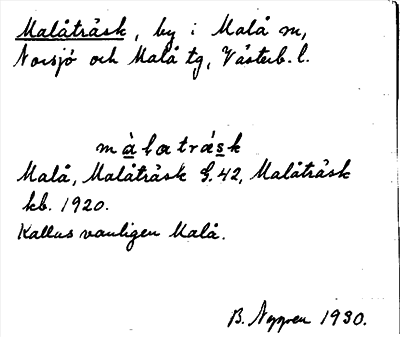 Malåträsk, by i Malå sn,
Norsjö och Malå tg, Västerb. l.
màlatràsk
Malå, Malåträsk G. 42, Malåträsk
kb. 1920.
Kallas vanligen Malå.
B. Nygren 1930.